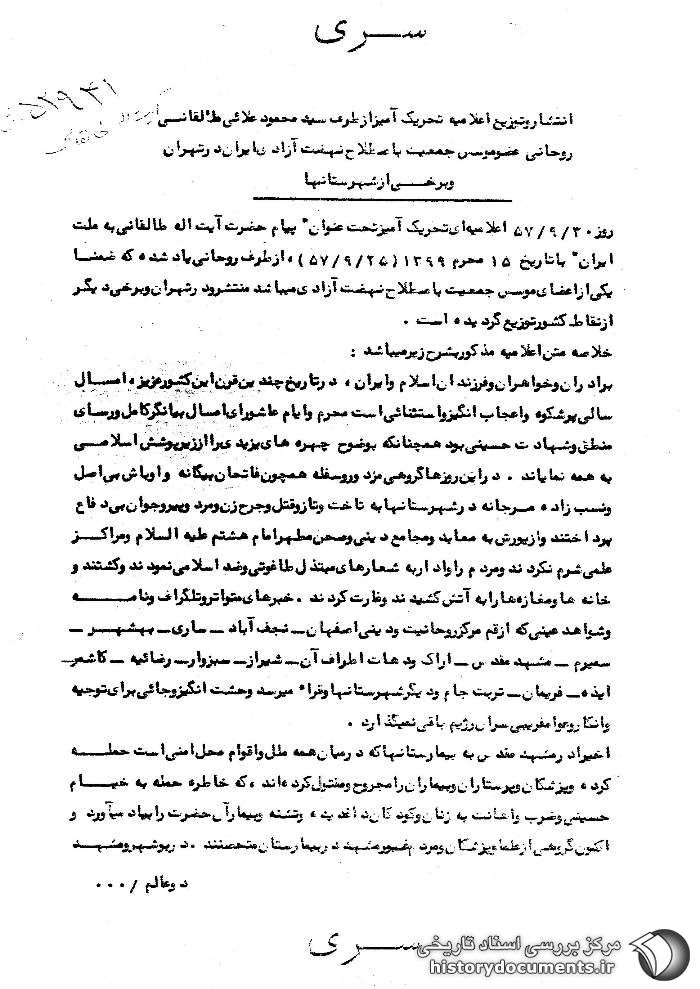 سری
۵۲۹۴۱
انتشار و توزیع اعلامیه تحریک آمیز از طرف سید محمود علائی طالقانی
روحانی عضو موسس جمعیت باصطلاح نهضت آزادی ایران در تهران
و برخی از شهرستانها
روز ۵۷/۹/۳۰ اعلامیه‌ای تحریک آمیز تحت عنوان " پیام حضرت آیت اله طالقانی به ملت
ایران " با تاریخ ۱۵ محرم ۱۳۹۹ (۵۷/۹/۲۵) ، از طرف روحانی یاد شده که ضمنا
یکی از اعضای موسس جمعیت باصطلاح نهضت آزادی میباشد منتشر و در تهران و برخی دیگر
از نقاط کشور توزیع گردیده است .
خلاصه متن اعلامیه مذکور بشرح زیر میباشد :
برادران و خواهران و فرزندان اسلام و ایران ، در تاریخ چندین قرن این کشور عزیز ، امسال
سالی پرشکوه و اعجاب انگیز و استثنائی است محرم و ایام عاشورای امسال بیانگر کامل و رسای
منطق و شهادت حسینی بود همچنانکه بوضوح چهره های یزیدی را از زیر پوشش اسلامی
به همه نمایاند . در این روزها گروهی مزدور و سفله همچون فاتحان بیگانه و اوباش بی اصل
و نسب زاده مرجانه در شهرستانها به تاخت و تاز و قتل و جرح زن و مرد و پیر و جوان بی دفاع
پرداختند و از یورش به معابد و مجامع دینی و صحن مطهر امام هشتم علیه السلام و مراکز
علمی شرم نکردند و مردم را وادار به شعارهای مبتذل طاغوتی و ضد اسلامی نمودند و کشتند و
خانه ها و مغازه ها را به آتش کشیدند و غارت کردند . خبرهای متواتر و تلگراف و نامه
و شواهد عینی که از قم مرکز روحانیت و دینی اصفهان ـ نجف آباد ـ ساری ـ بهشهر ـ
سمیرم ـ مشهد مقدس ـ اراک و دهات اطراف آن ـ شیراز ـ سبزوار ـ رضائیه ـ کاشمر
ایذه ـ فریمان ـ تربت جام و دیگر شهرستانها و قراء میرسد وحشت انگیز و جائی برای توجیه
و انکار و عوامفریبی سران رژیم باقی نمیگذارد .
اخیرا در مشهد مقدس به بیمارستانها که در میان همه ملل و اقوام محل امنی است حمله
کرده و پزشکان و پرستاران و بیماران را مجروح و مقتول کرده اند ، که خاطره حمله به خیام
حسینی و ضرب و اهانت به زنان و کودکان داغدیده و تشنه و بیمار آل حضرت را بیاد میآورد و
اکنون گروهی از علما و پزشکان و مردم غیور مشهد در بیمارستان متحصنند . در بوشهر و مشهد
دو عالم /...
سری
مرکز بررسی اسناد تاریخی
historydocuments.ir